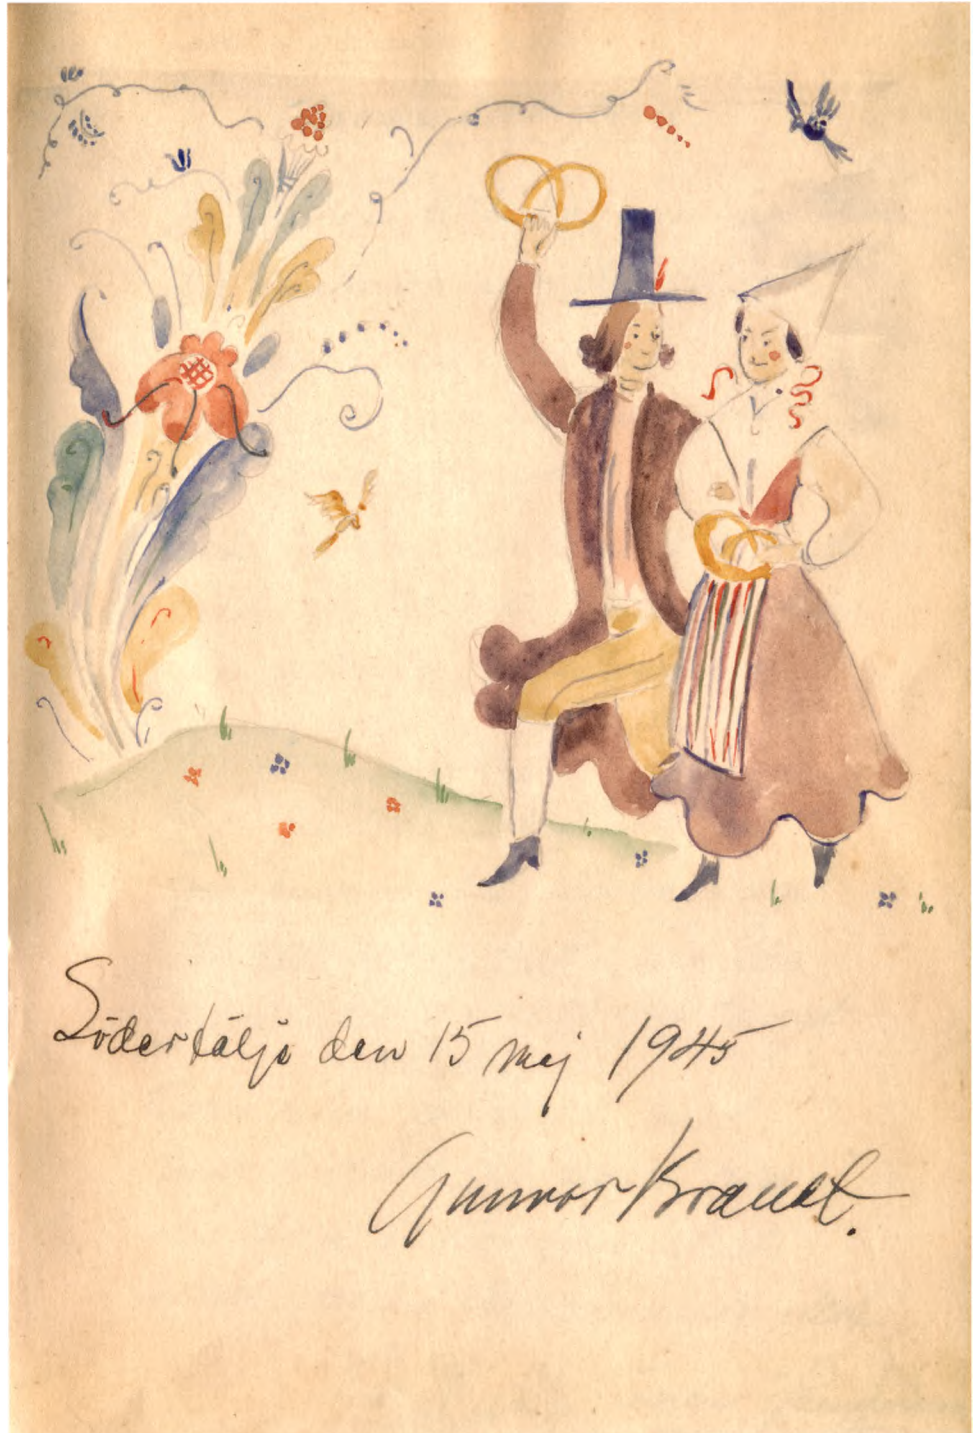 Södertälje den 15 maj 1945
Gunvor Krandt.